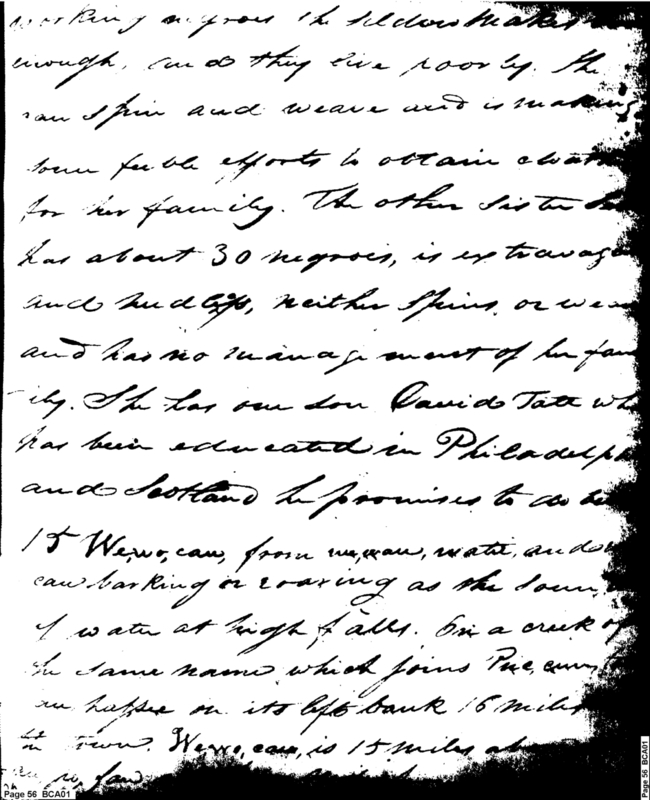 working negroes she seldom makes
enough, and they live poorly. She
can spin and weave and is making
some feeble efforts to obtain cloath
for her family. The other sister
has about 30 negroes, is extravaga
and heedless, neither spins or wea
and has no management of her fam
ily. She has one son David Tate wh
has been educated in Philadelph
and Scotland he promises to do be
15 We,wo,cau, from we,wau, water, and
cau barking or roaring as the soun
of water at high falls. On a creek of
the same name which joins Puc,cun,
tau hosse on its left bank 16 miles
town. We,wo,cau, is 15 miles ab
Page 56 BCA01
Page 56 BCA01